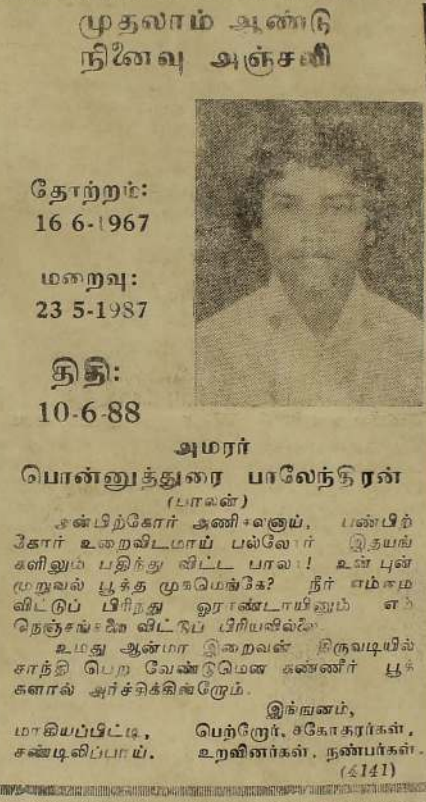 முதலாம் ஆண்டு
நினைவு அஞ்சலி
தோற்றம்:
16 6-1967
மறைவு:
23 5-1987
திதி:
10-6-88
அமரர்
பொன்னுத்துரை பாலேந்திரன்
(பாலன்)
அன்பிற்கோர் அணிகலனாய், பண்பிற்
கோர் உறைவிடமாய் பல்லோர் இதயங்
களிலும் பதிந்து விட்ட பாலா! உன் புன்
முறுவல் பூத்த முகமெங்கே? நீர் எம்மை
விட்டுப் பிரிந்து ஓராண்டாயினும் எம்
நெஞ்சங்களை விட்டுப் பிரியவில்லை.
உமது ஆன்மா இறைவன் திருவடியில்
சாந்தி பெற வேண்டுமென கண்ணீர் பூக்
களால் அர்ச்சிக்கின்றோம்.
இங்ஙனம்,
மாகியப்பிட்டி, பெற்றோர், சகோதரர்கள்,
சண்டிலிப்பாய். உறவினர்கள், நண்பர்கள்.
(4141)